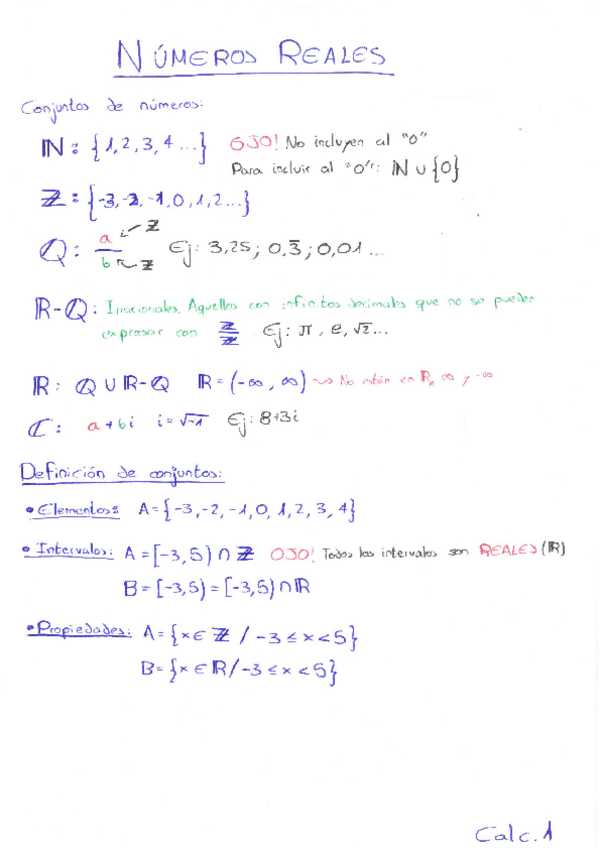 NÚMEROS REALES
Conjuntos de números:
ℕ: {1, 2, 3, 4 ...} OJO! No incluyen al "0"
Para incluir al "0": ℕ ∪ {0}
ℤ: {-3, -2, -1, 0, 1, 2 ...}
ℚ: a/b ← ℤ ← ℤ Ej: 3,25; 0,3̅; 0,01 ...
ℝ-ℚ: Irracionales. Aquellos con infinitos decimales que no se pueden
expresar con ℤ/ℤ Ej: π, e, √2 ...
ℝ: ℚ ∪ ℝ-ℚ ℝ = (-∞, ∞) → No están en ℝ, ∞ y -∞
ℂ: a + bi i = √-1 Ej: 8+3i
Definición de conjuntos:
• Elementos: A = {-3, -2, -1, 0, 1, 2, 3, 4}
• Intervalos: A = [-3, 5) ∩ ℤ OJO! Todos los intervalos son REALES (ℝ)
B = [-3, 5) = [-3, 5) ∩ ℝ
• Propiedades: A = {x ∈ ℤ / -3 ≤ x < 5}
B = {x ∈ ℝ / -3 ≤ x < 5}
Calc. 1